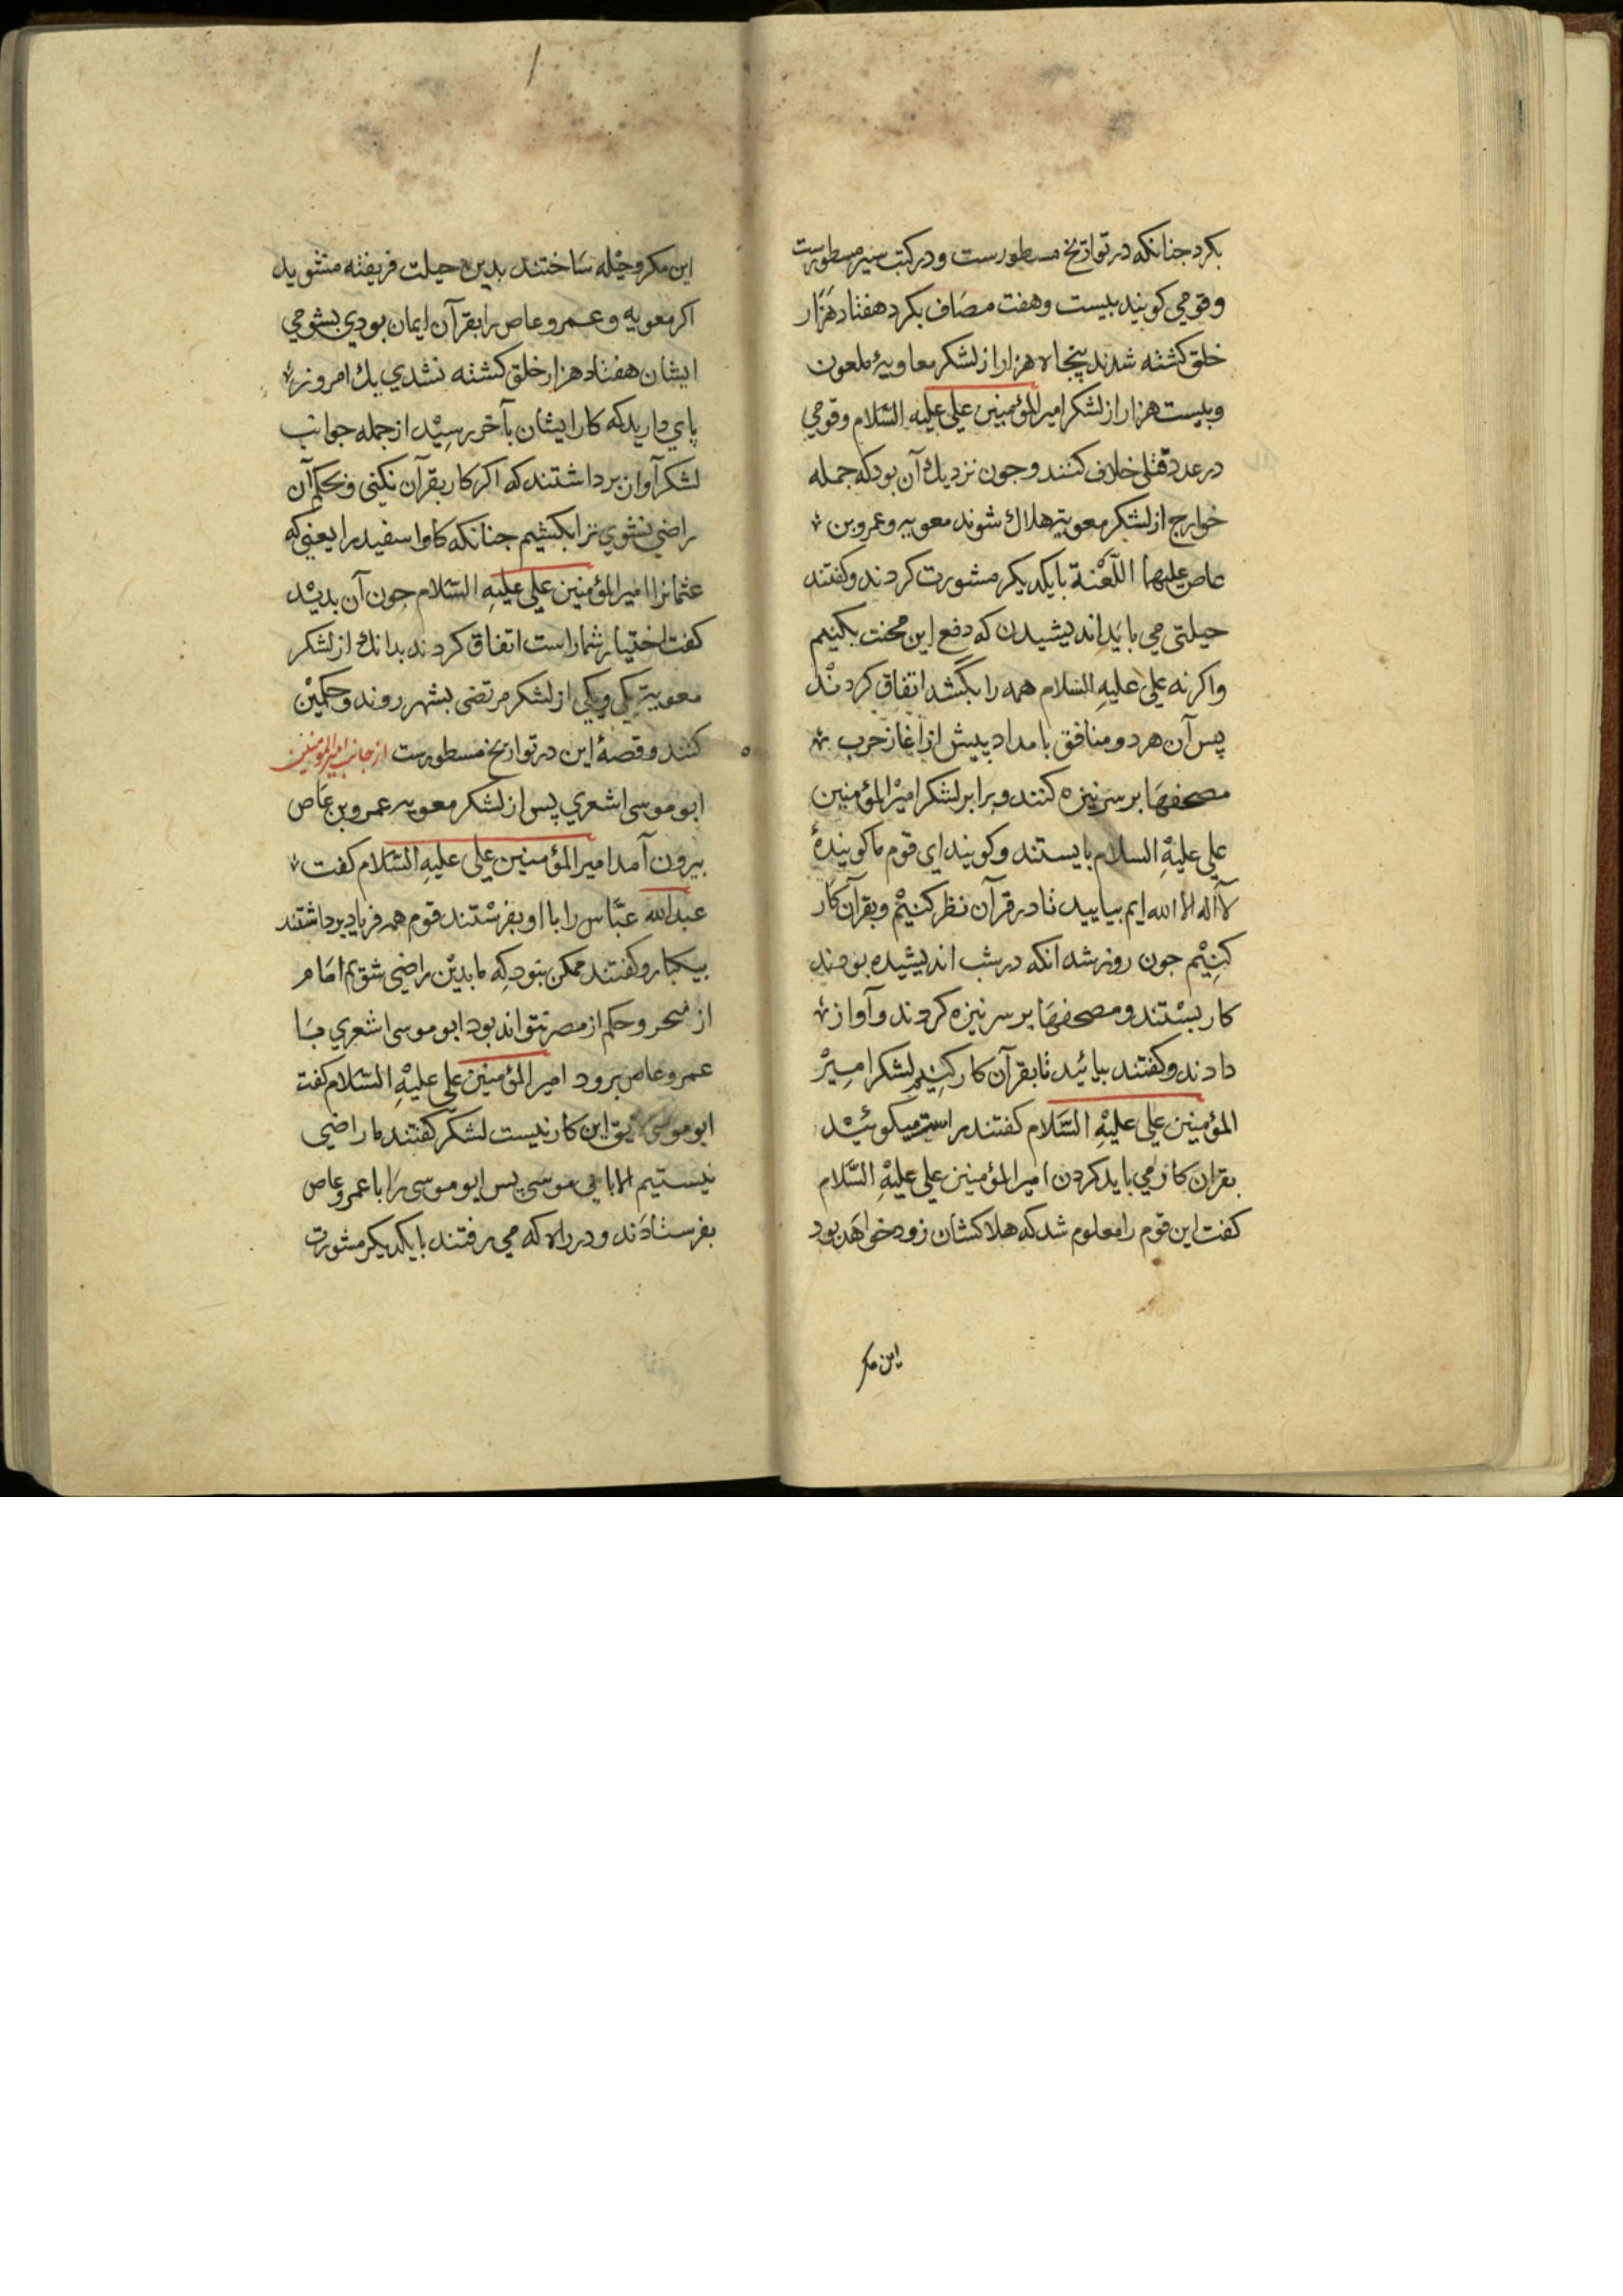 بکرد جنانکه در تواریخ مسطورست و در کتب سیر مسطورست
و قومی کویند بیست و هفت مصاف بکرد هفتاد هزار
خلق کشته شدند پنجاه هزار از لشکر معاویۀ ملعون
و بیست هزار از لشکر امیر المؤمنین علی علیه السلام و قومی
در عدد قتلی خلاف کنند و جون نزدیک آن بود که جمله
خوارج از لشکر معویة هلاک شوند معویه و عمرو بن
عاص علیهما اللّعنة بایکدیکر مشورت کردند و کفتند
حیلتی می باید اندیشیدن که دفع این محنت بکنیم
و اکر نه علی علیه السلام همه را بکشد اتفاق کردند
پس آن هر دو منافق بامداد پیش از اغاز حرب
مصحفها بر سر نیزه کنند و برابر لشکر امیر المؤمنین
علی علیه السلام بایستند و کویند ای قوم ما کویندۀ
لا اله الا الله ایم بیایید تا در قرآن نظر کنیم و بقرآن کار
کنیم جون روز شد انکه در شب اندیشیده بودند
کار بستند و مصحفها بر سر نیزه کردند و آواز
دادند و کفتند بیائید تا بقرآن کار کنیم لشکر امیر
المؤمنین علی علیه السلام کفتند راست میکوئید
بقران کار می باید کردن امیر المؤمنین علی علیه السلام
کفت این قوم را معلوم شد که هلاکشان زود خواهد بود
این مکر
این مکر و حیله ساختند بدین حیلت فریفته مشوید
اکر معویه و عمرو عاص را بقرآن ایمان بودی بشومی
ایشان هفتاد هزار خلق کشته نشدی یک امروز
پای دارید که کار ایشان بآخر رسید از جمله جوانب
لشکر آواز برداشتند که اکر کار بقرآن نکنی و بحکم آن
راضی نشوی ترا بکشیم جنانکه کاو اسفید را یعنی که
عثمانرا امیر المؤمنین علی علیه السلام جون آن بدید
کفت اختیار شما راست اتفاق کردند بدانک از لشکر
معویة یکی و یکی از لشکر مرتضی بشهر روند و حکمین
کنند و قصۀ این در تواریخ مسطورست از جانب امیر المومنین
ابو موسی اشعری پس از لشکر معویه عمرو بن عاص
بیرون آمد امیر المؤمنین علی علیه السلام کفت
عبد الله عباس را با او بفرستند قوم همه فریاد برداشتند
بیکبار و کفتند ممکن نبود که ما بدین راضی شویم امام
از و حکم از مصر نتواند بود ابو موسی اشعری با
عمرو عاص برود امیر المؤمنین علی علیه السلام کفت
ابو موسی لایق این کار نیست لشکر کفتند ما راضی
نیستیم الا بابی موسی پس ابو موسی را با عمرو عاص
بفرستادند و در راه که می رفتند بایکدیکر مشورت